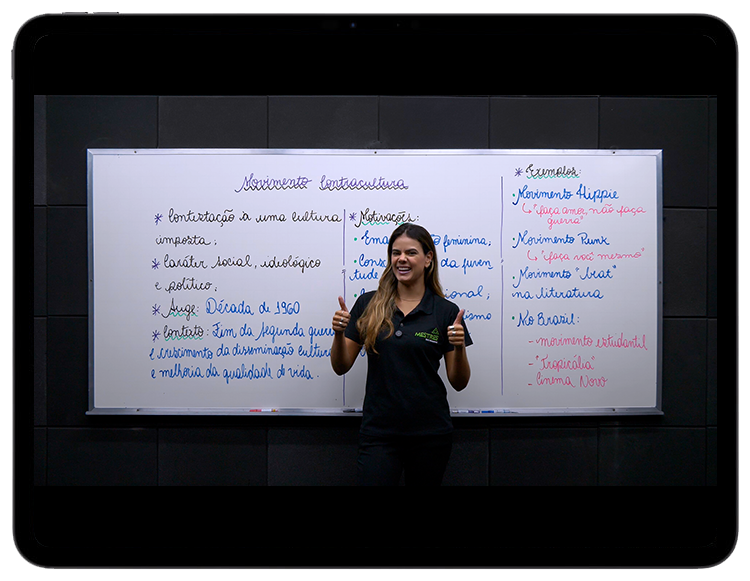 Movimento Contracultura
* Contestação à uma cultura
imposta;
* Caráter social, ideológico
e político;
* Auge: Década de 1960
* Contato: Fim da Segunda guerra
e crescimento da disseminação cultura
e melhoria da qualidade de vida.
* Motivações:
• feminina;
da juven
tude
ional;
ismo
* Exemplos:
• Movimento Hippie
↳ "faça amor, não faça
guerra"
• Movimento Punk
↳ "faça você mesmo"
• Movimento "beat"
na literatura
• No Brasil:
- movimento estudantil
- "Tropicália"
- Cinema Novo